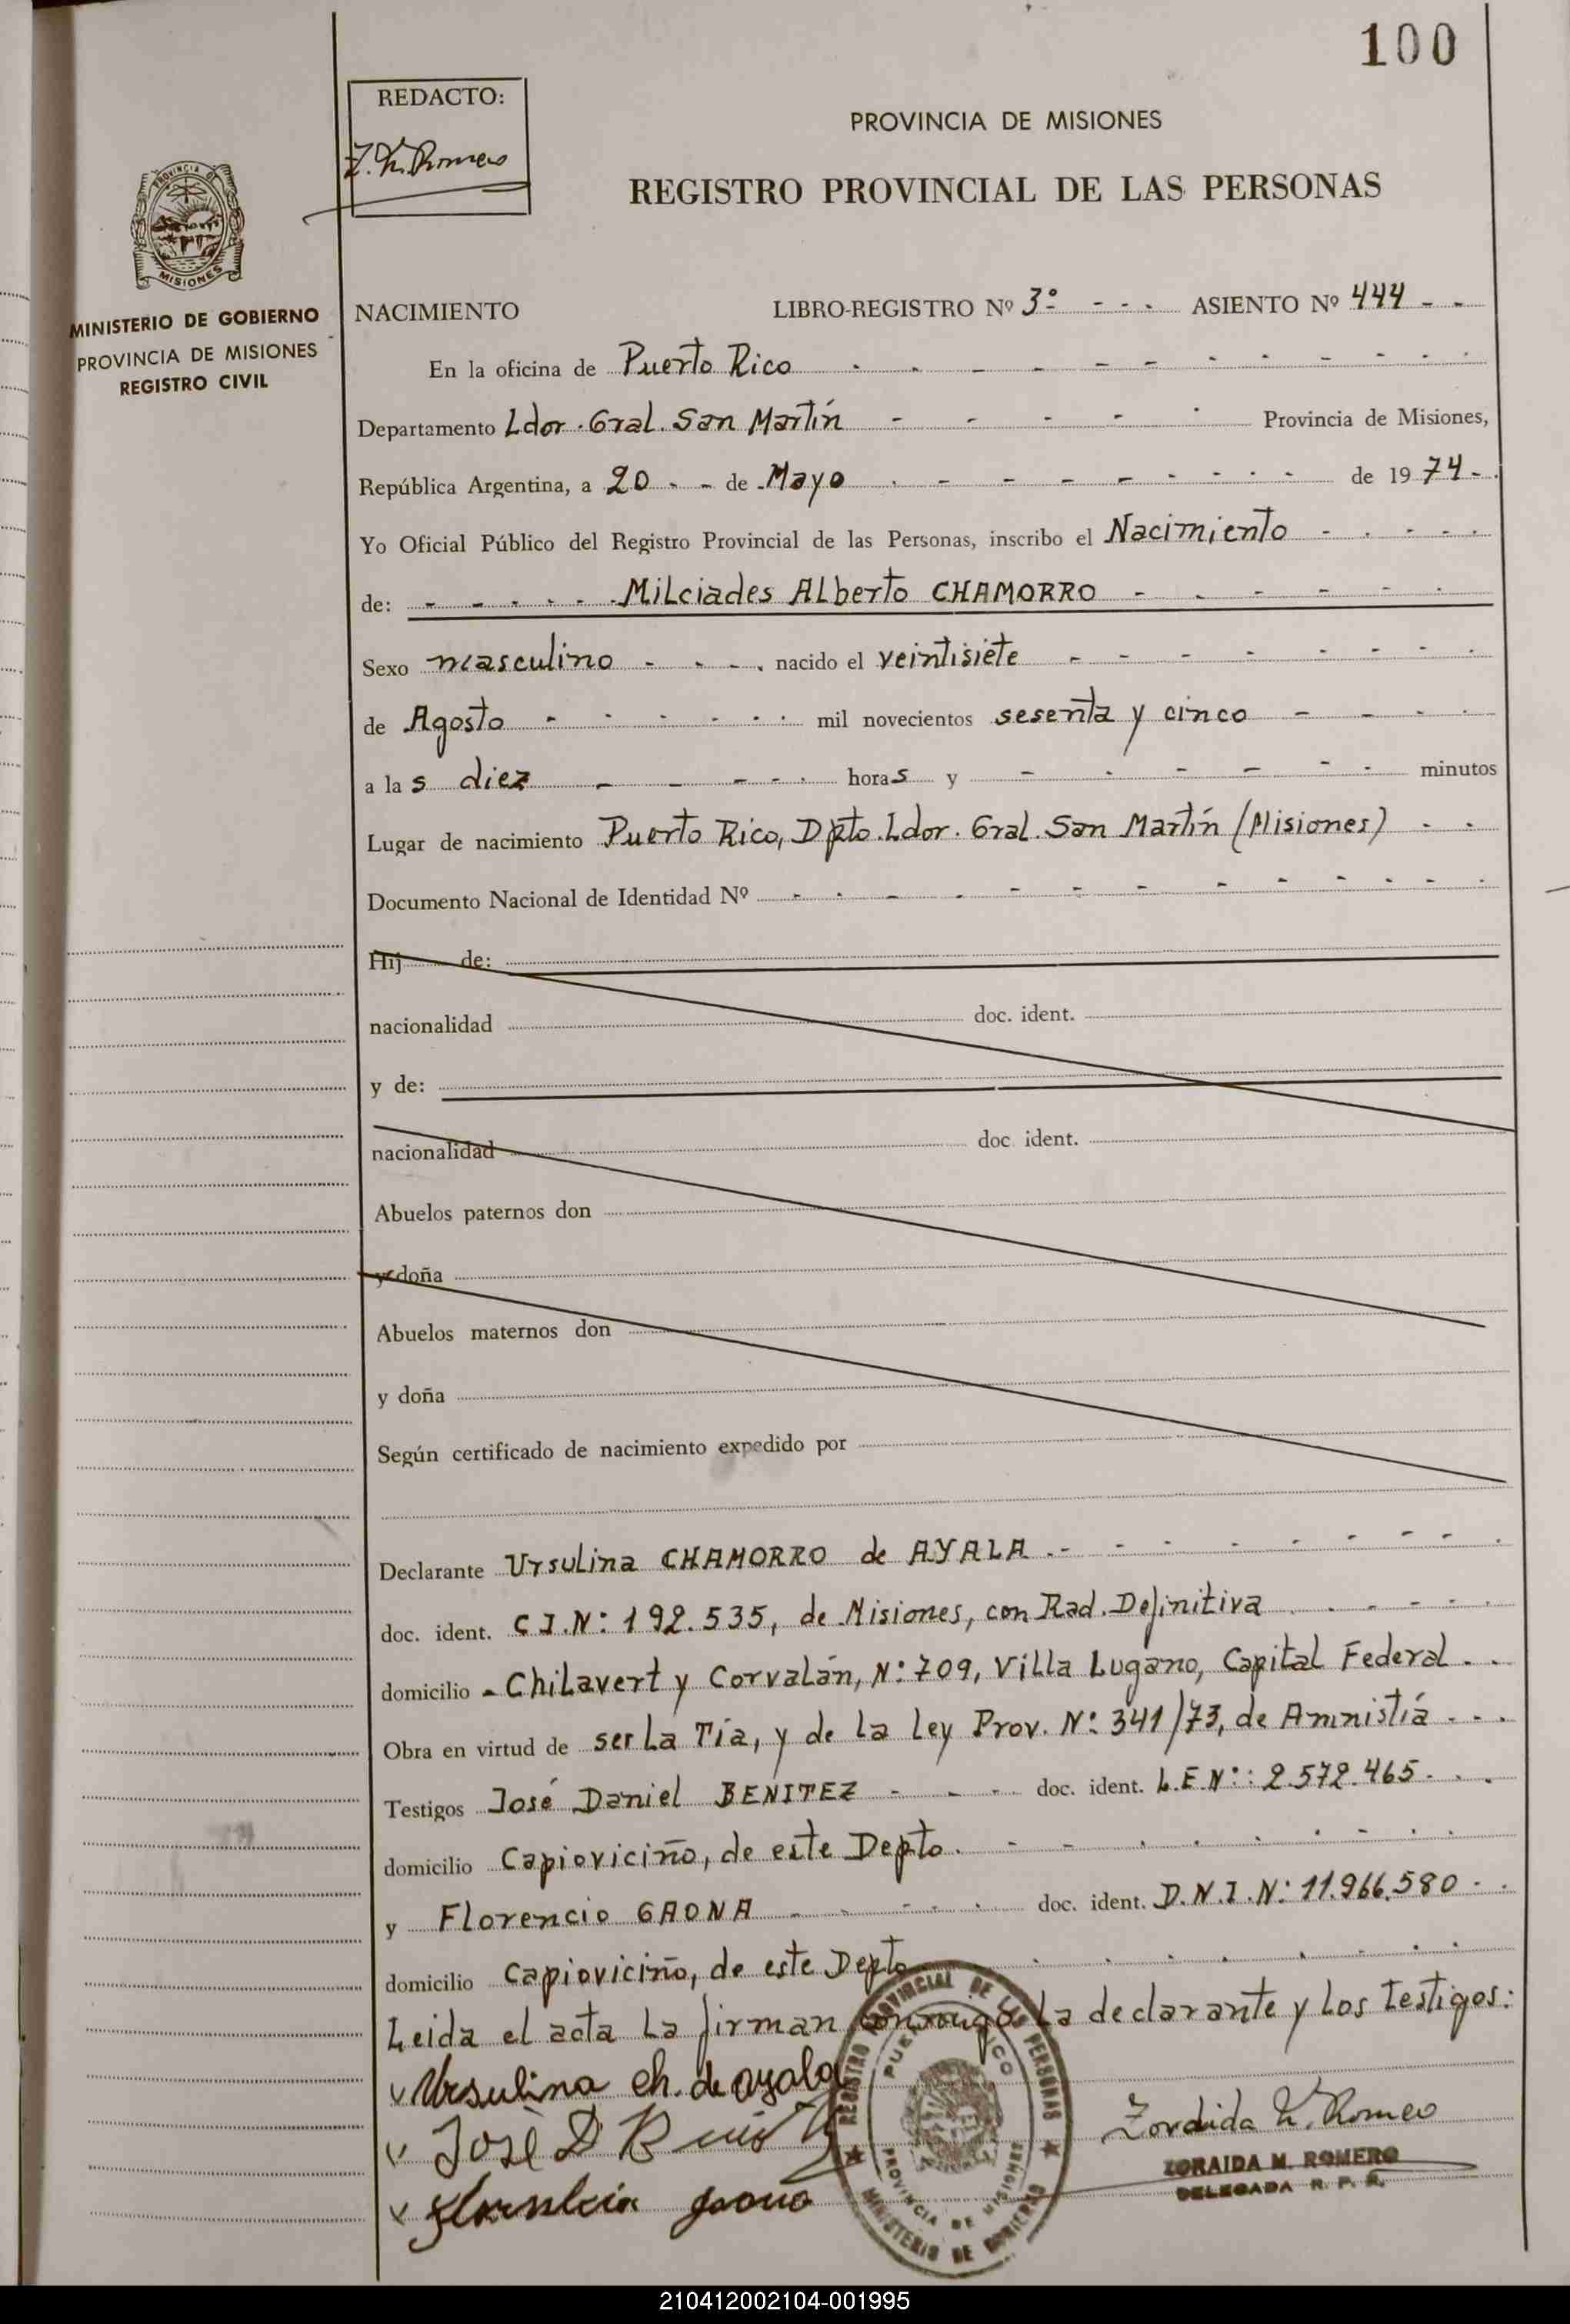 100
REDACTO:
Z. M. Romero
PROVINCIA DE MISIONES
REGISTRO PROVINCIAL DE LAS PERSONAS
PROVINCIA DE
MISIONES
MINISTERIO DE GOBIERNO
PROVINCIA DE MISIONES
REGISTRO CIVIL
NACIMIENTO LIBRO-REGISTRO Nº 3º - - - ASIENTO Nº 444 - -
En la oficina de Puerto Rico
Departamento Ldor. Gral. San Martín Provincia de Misiones,
República Argentina, a 20 - - de Mayo de 1974 -
Yo Oficial Público del Registro Provincial de las Personas, inscribo el Nacimiento
de: Milciades Alberto CHAMORRO
Sexo masculino nacido el veintisiete
de Agosto mil novecientos sesenta y cinco
a las diez horas y minutos
Lugar de nacimiento Puerto Rico, Dpto. Ldor. Gral. San Martín (Misiones)
Documento Nacional de Identidad Nº
Hij de:
nacionalidad doc. ident.
y de:
nacionalidad doc. ident.
Abuelos paternos don
y doña
Abuelos maternos don
y doña
Según certificado de nacimiento expedido por
Declarante Ursulina CHAMORRO de AYALA
doc. ident. C.I.Nº: 192.535, de Misiones, con Rad. Definitiva
domicilio - Chilavert y Corvalán, Nº: 709, Villa Lugano, Capital Federal
Obra en virtud de ser La Tía, y de La Ley Prov. Nº: 341/73, de Amnistía
Testigos José Daniel BENITEZ doc. ident. L.E.Nº: 2.572.465
domicilio Capioviciño, de este Depto.
y Florencio GAONA doc. ident. D.N.I.Nº: 11.966.580
domicilio Capioviciño, de este Depto
Leida el acta La firman conmigo La declarante y Los testigos:
Ursulina ch. de ayala
José D
gaona
REGISTRO PROVINCIAL DE LAS PERSONAS
PUERTO RICO
PROVINCIA DE MISIONES
MINISTERIO DE GOBIERNO
Zoraida M. Romero
ZORAIDA M. ROMERO
DELEGADA R. P. P.
210412002104-001995